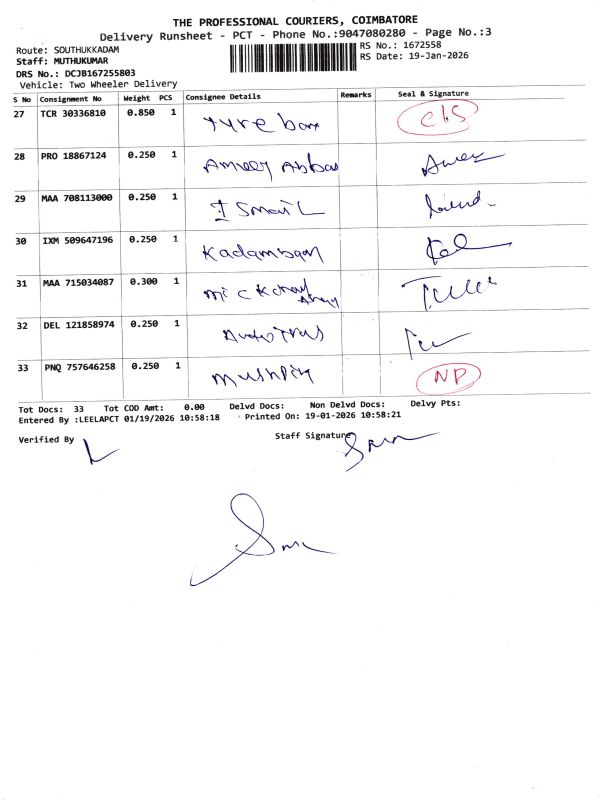 THE PROFESSIONAL COURIERS, COIMBATORE
Delivery Runsheet - PCT - Phone No.:9047080280 - Page No.:3
Route: SOUTHUKKADAM
RS No.: 1672558
Staff: MUTHUKUMAR
RS Date: 19-Jan-2026
DRS No.: DCJB167255803
Vehicle: Two Wheeler Delivery
S No Consignment No Weight PCS Consignee Details Remarks Seal & Signature
27 TCR 30336810 0.850 1 tyre box C/S
28 PRO 18867124 0.250 1 Ameer Abbas
29 MAA 708113000 0.250 1 Ismail
30 IXM 509647196 0.250 1 Kadambaan
31 MAA 715034087 0.300 1
32 DEL 121858974 0.250 1
33 PNQ 757646258 0.250 1 NP
Tot Docs: 33 Tot COD Amt: 0.00 Delvd Docs: Non Delvd Docs: Delvy Pts:
Entered By :LEELAPCT 01/19/2026 10:58:18 Printed On: 19-01-2026 10:58:21
Verified By Staff Signature